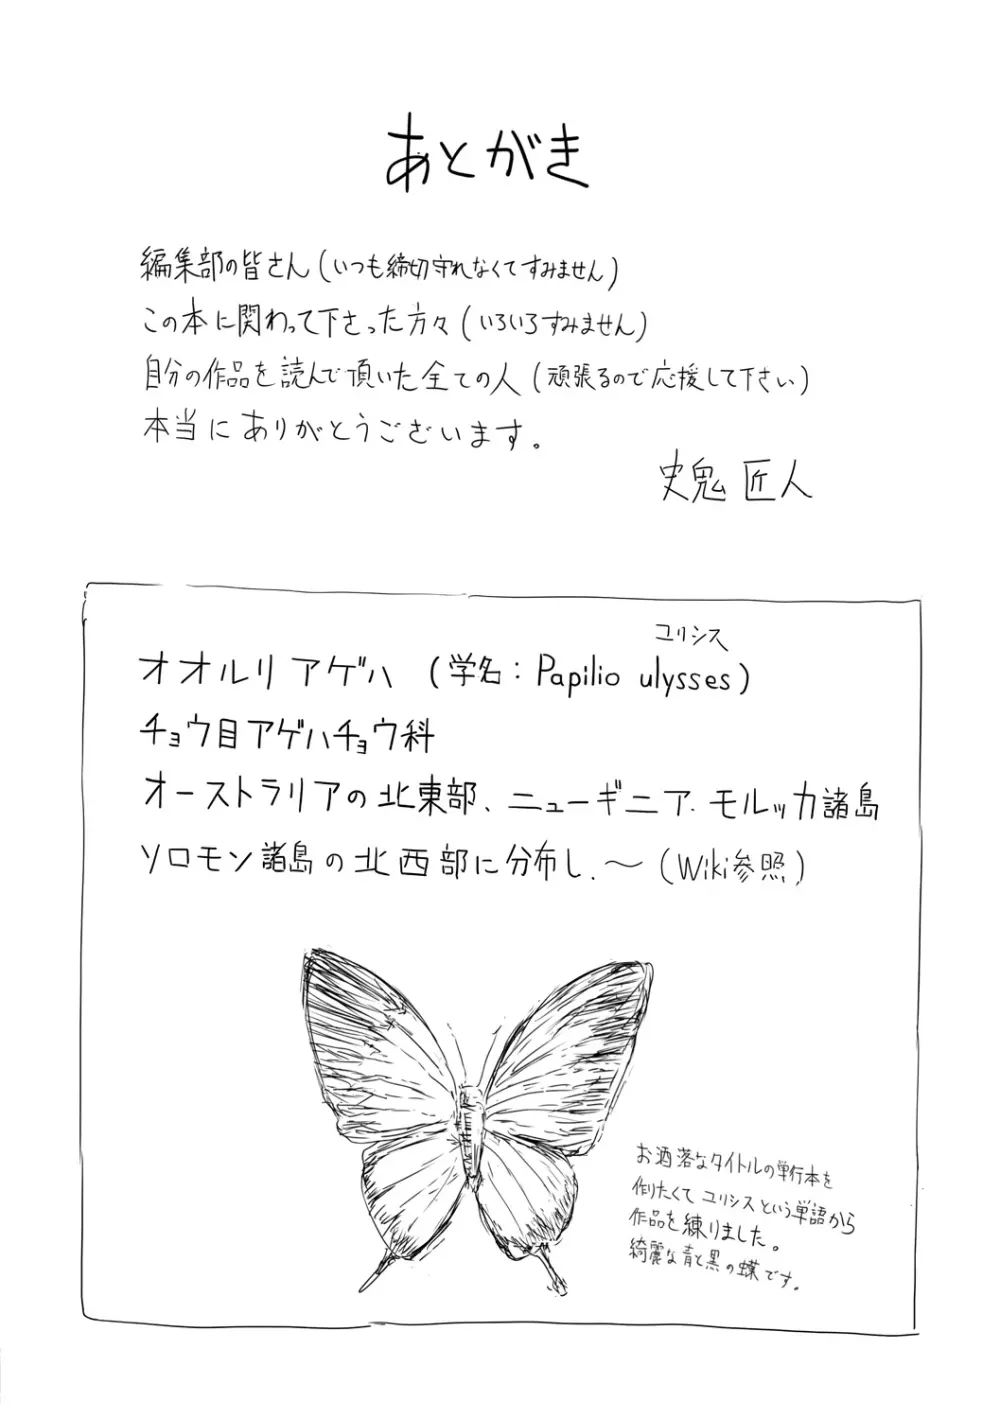 あとがき
編集部の皆さん(いつも締切守れなくてすみません)
この本に関わって下さった方々(いろいろすみません)
自分の作品を読んで頂いた全ての人(頑張るので応援して下さい)
本当にありがとうございます。
史鬼匠人
ユリシス
オオルリアゲハ (学名:Papilio ulysses)
チョウ目アゲハチョウ科
オーストラリアの北東部、ニューギニア、モルッカ諸島
ソロモン諸島の北西部に分布し、～(Wiki参照)
お洒落なタイトルの単行本を
作りたくてユリシスという単語から
作品を練りました。
綺麗な青と黒の蝶です。